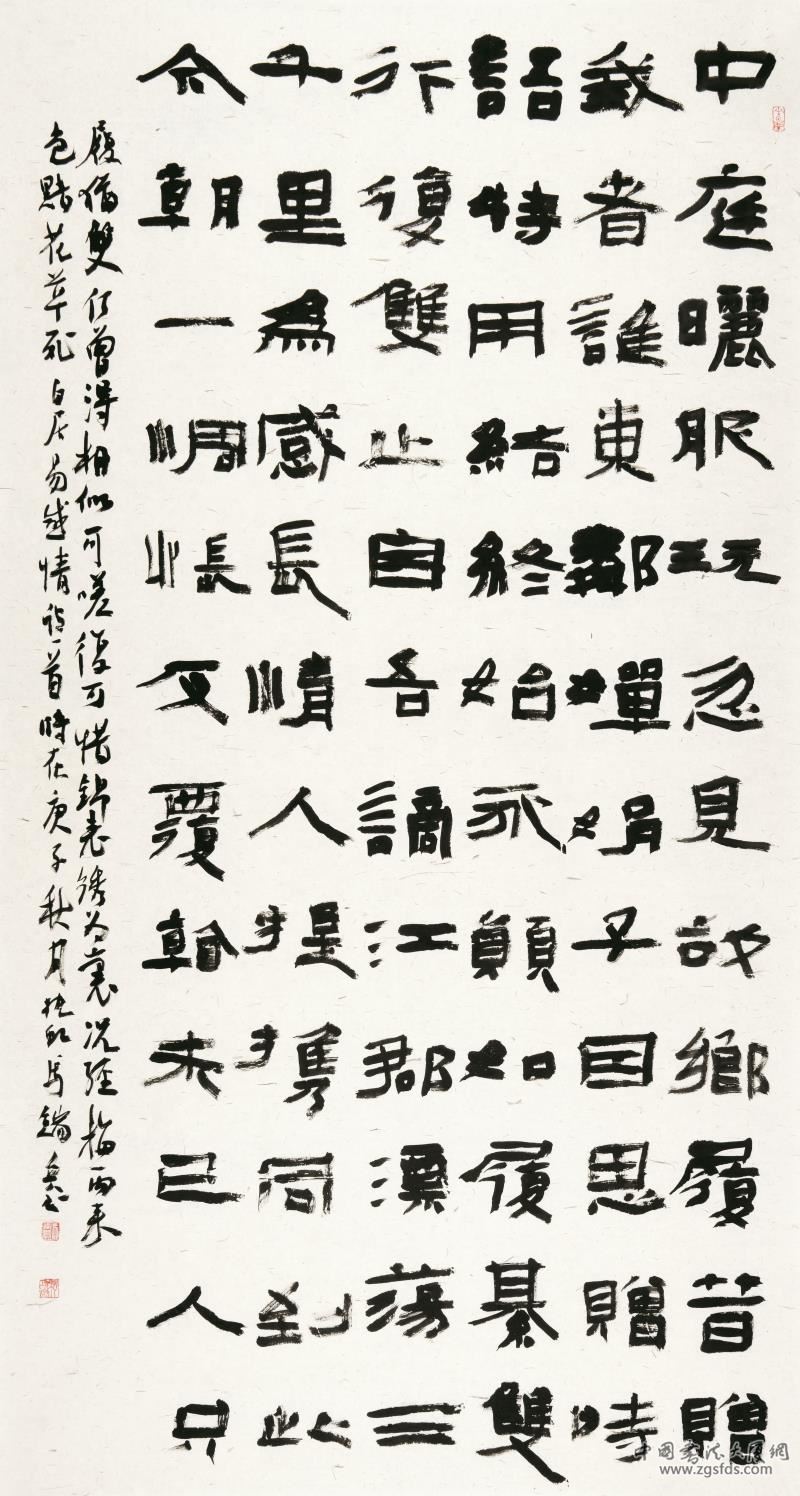 中庭曬服玩忽見故鄉履昔贈
我者誰東鄰嬋娟子因思贈時
語特用結終始永願如履綦雙
行復雙止自吾謫江郡漂蕩三
千里為感長情人提攜同到此
今朝一惆悵反覆看未已人只
履猶雙何曾得相似可嗟復可惜錦表繡為裏況經梅雨來
色黯花草死白居易感情詩一首時在庚子秋月
中国书法文展網
www.zgsfds.com